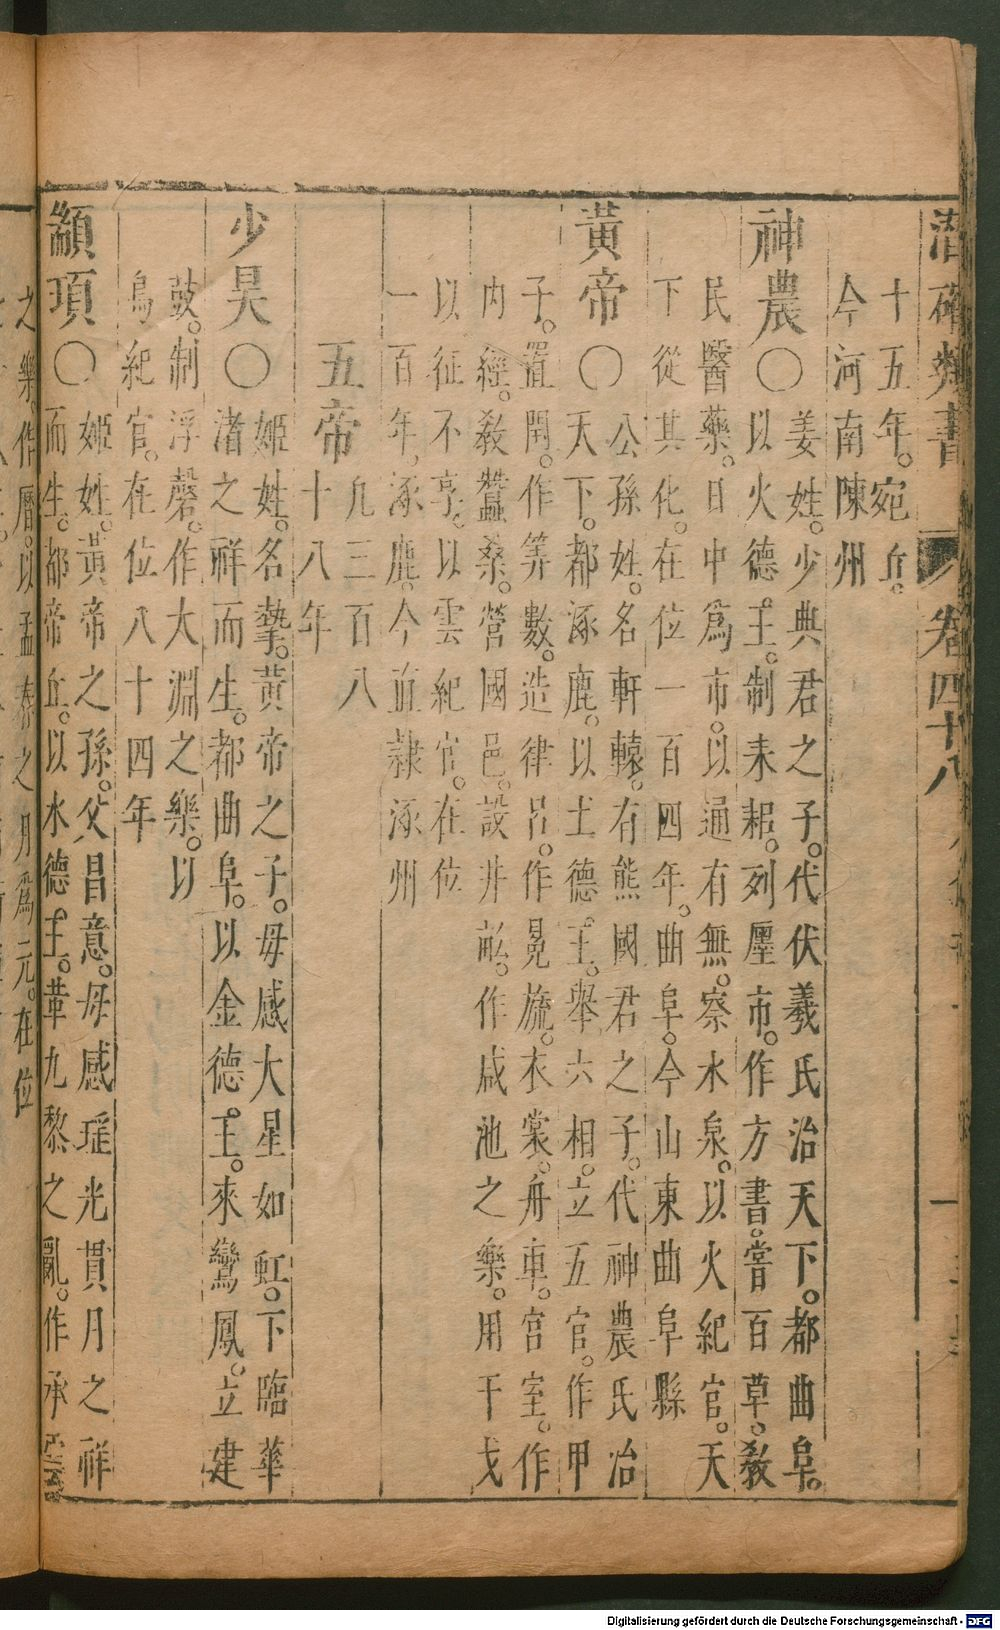 潛確類書 卷四十八
十五年。宛丘。
今河南陳州
神農〇姜姓。少典君之子。代伏羲氏治天下。都曲阜。
以火德王。制耒耜。列廛市。作方書。嘗百草。教
民醫藥。日中爲市。以通有無。察水泉。以火紀官。天
下從其化。在位一百四年。曲阜。今山東曲阜縣
黃帝〇公孫姓。名軒轅。有熊國君之子。代神農氏治
天下。都涿鹿。以土德王。舉六相。立五官。作甲
子。置閏。作筭數。造律呂。作冕旒。衣裳。舟車。宮室。作
内經。教蠶桑。營國邑。設井畝。作咸池之樂。用干戈
以征不享。以雲紀官。在位
一百年。涿鹿。今直隸涿州
五帝凡三百八
十八年
少昊〇姬姓。名摯。黃帝之子。母感大星如虹。下臨華
渚之祥而生。都曲阜。以金德王。來鸞鳳。立建
鼓。制浮磬。作大淵之樂。以
鳥紀官。在位八十四年
顓頊〇姬姓。黃帝之孫。父昌意。母感瑤光貫月之祥
而生。都帝丘。以水德王。革九黎之亂。作承雲
之樂。作曆。以孟春之月爲元。在位
Digitalisierung gefördert durch die Deutsche Forschungsgemeinschaft - DFG